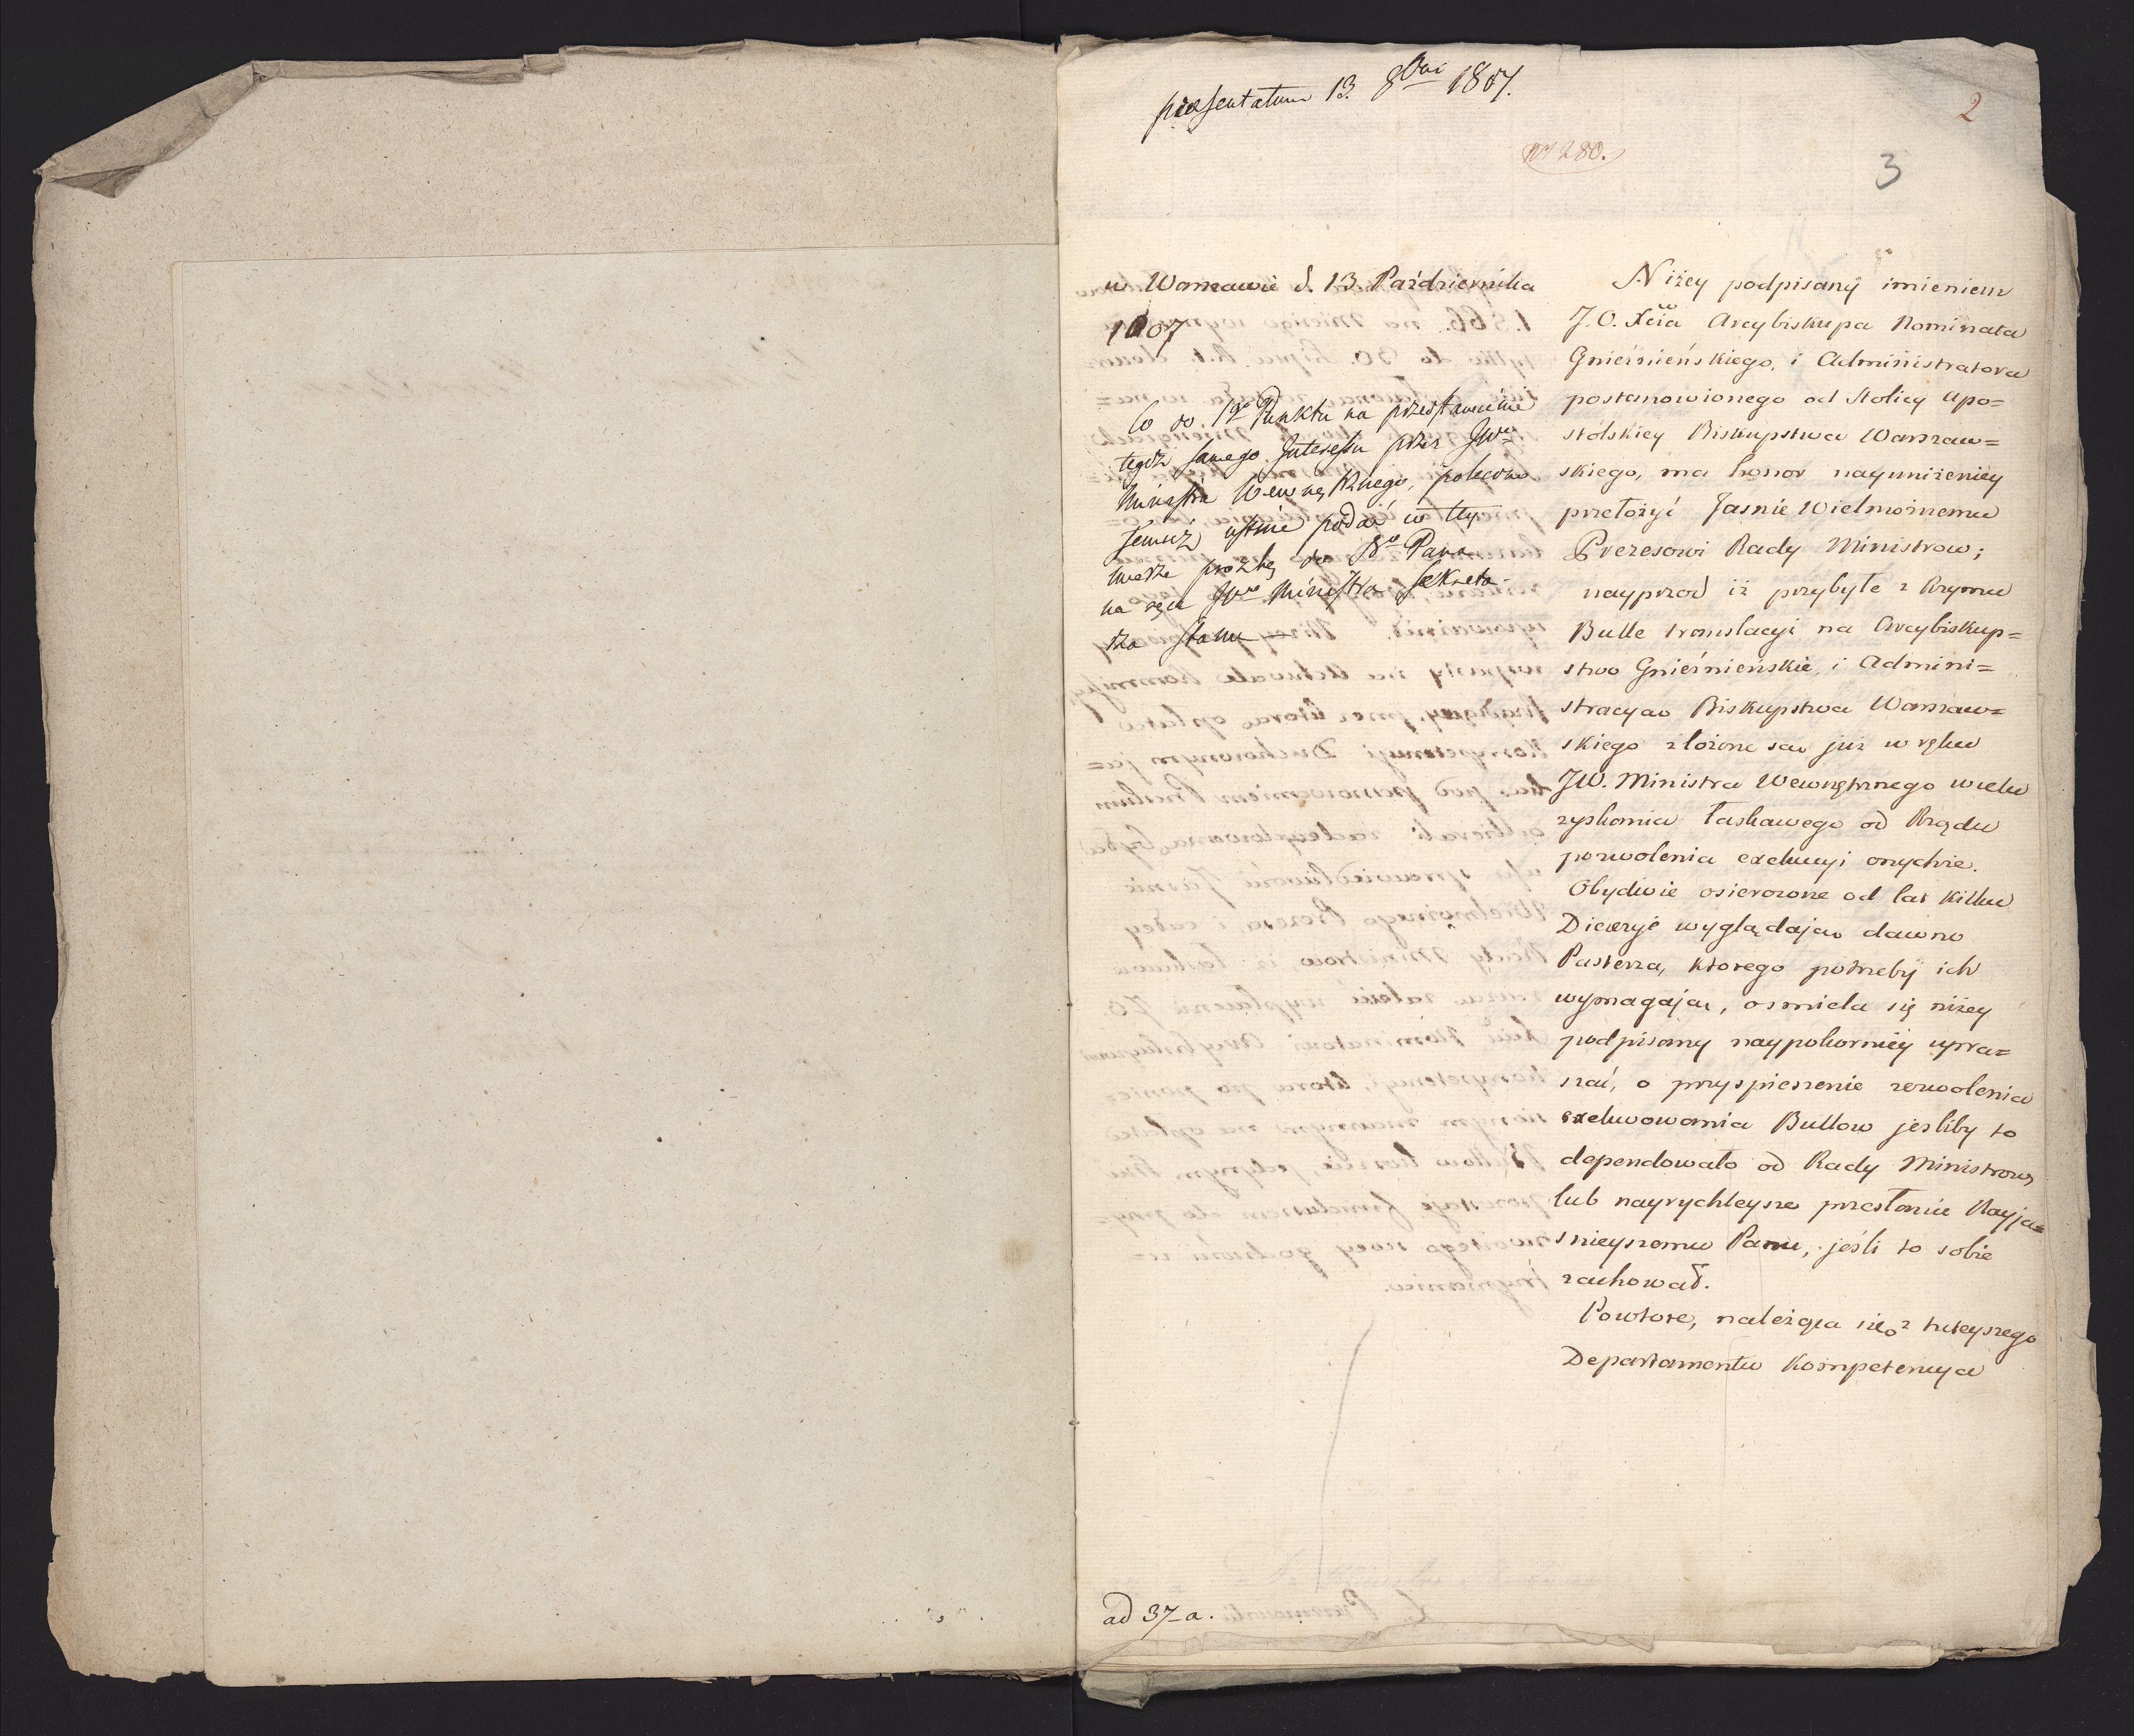 præsentatum 13. 8bris 1807.
2
No 280.
3
w Warszawie d. 13. Października
1807
Co do 1go Punktu na przedstawienie
tegoż samego Interessu przez JWo
Ministra Wewnętrznego, polecono
Jemuż ustnie podać w tey
mierze prozbę do No Pana
na ręce JWo Ministra Sekreta-
rza Stanu
Niżey podpisany imieniem
J.O. Xcia Arcybiskupa Nominata
Gnieźnieńskiego, i Administratora
postanowionego od Stolicy Apo=
stolskiey Biskupstwa Warszaw=
skiego, ma honor nayuniżeniey
przełożyć Jaśnie Wielmożnemu
Prezesowi Rady Ministrow;
nayprzod iż przybyłe z Rzymu
Bulle translacyi na Arcybiskup=
stwo Gnieźnieńskie, i Admini=
stracyą Biskupstwa Warszaw=
skiego złożone są już w ręku
JW. Ministra Wewnętrznego w celu
zyskania łaskawego od Rządu
pozwolenia exekucyi onychże.
Obydwie osierocone od lat kilku
Diecezye wyglądają dawno
Pasterza, ktorego potrzeby ich
wymagają, osmiela się niżey
podpisany naypokorniéy upra=
szać, o przyspieszenie zezwolenia
exekwowania Bullow jesliby to
dependowało od Rady Ministrow,
lub nayrychleysze przesłanie Nayja=
snieyszemu Panu, jeśli to sobie
zachował.
Powtore, należąca się z tuteyszego
Departamentu Kompetencya
ad 37-a.